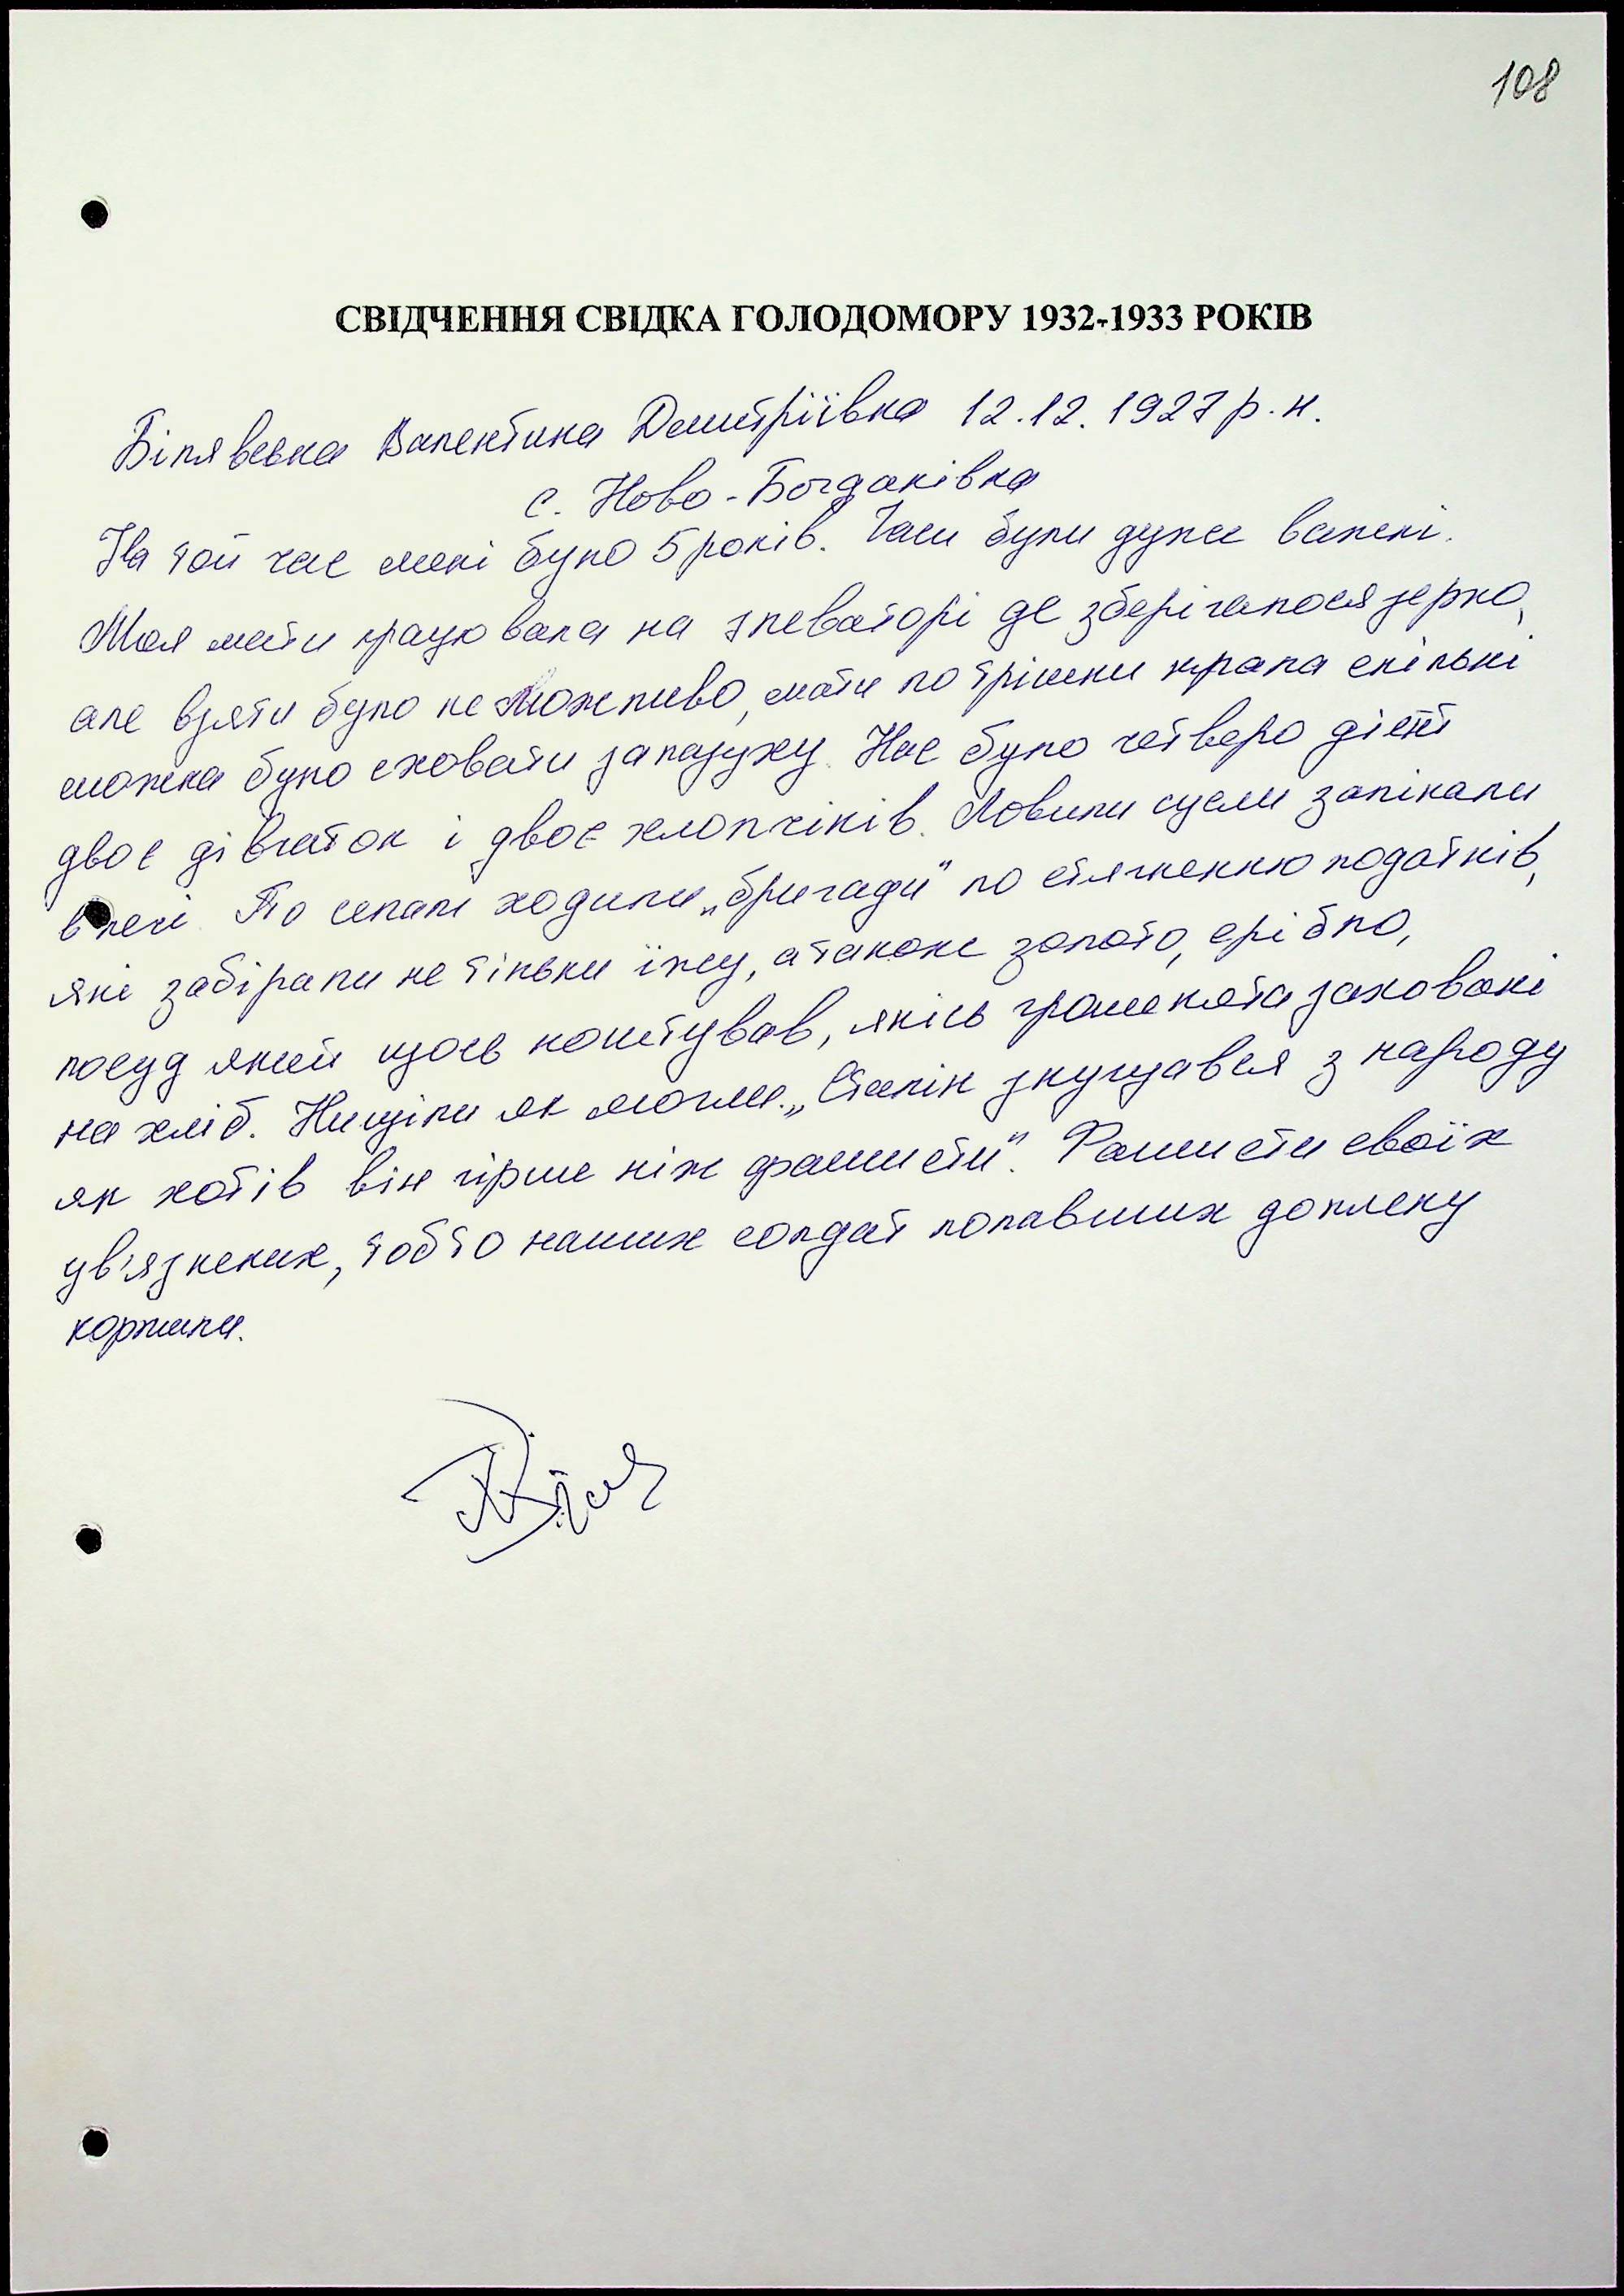 108
СВІДЧЕННЯ СВІДКА ГОЛОДОМОРУ 1932-1933 РОКІВ
Білявська Валентина Дмитріївна 12.12.1927 р.н.
с. Ново-Богданівка
На той час мені було 5 років. Часи були дуже важкі.
Моя мати працювала на элеваторі де зберігалося зерно,
але взяти було не можливо, мати по трішки крала скількі
можна було сховати за пазуху. Нас було четверо дітей
двоє дівчаток і двоє хлопчіків. Ловили сусли запікали
в печі. По селам ходили „бригади" по стягненню податків,
які забірали не тільки їжу, а також золото, срібло,
посуд який щось коштував, якісь грошенята заховані
на хліб. Нищіли як могли. „Сталін знущався з народу
як хотів він гірше ніж фашисти". Фашисти своїх
ув'язнених, тобто наших солдат попавших до плену
кормили.